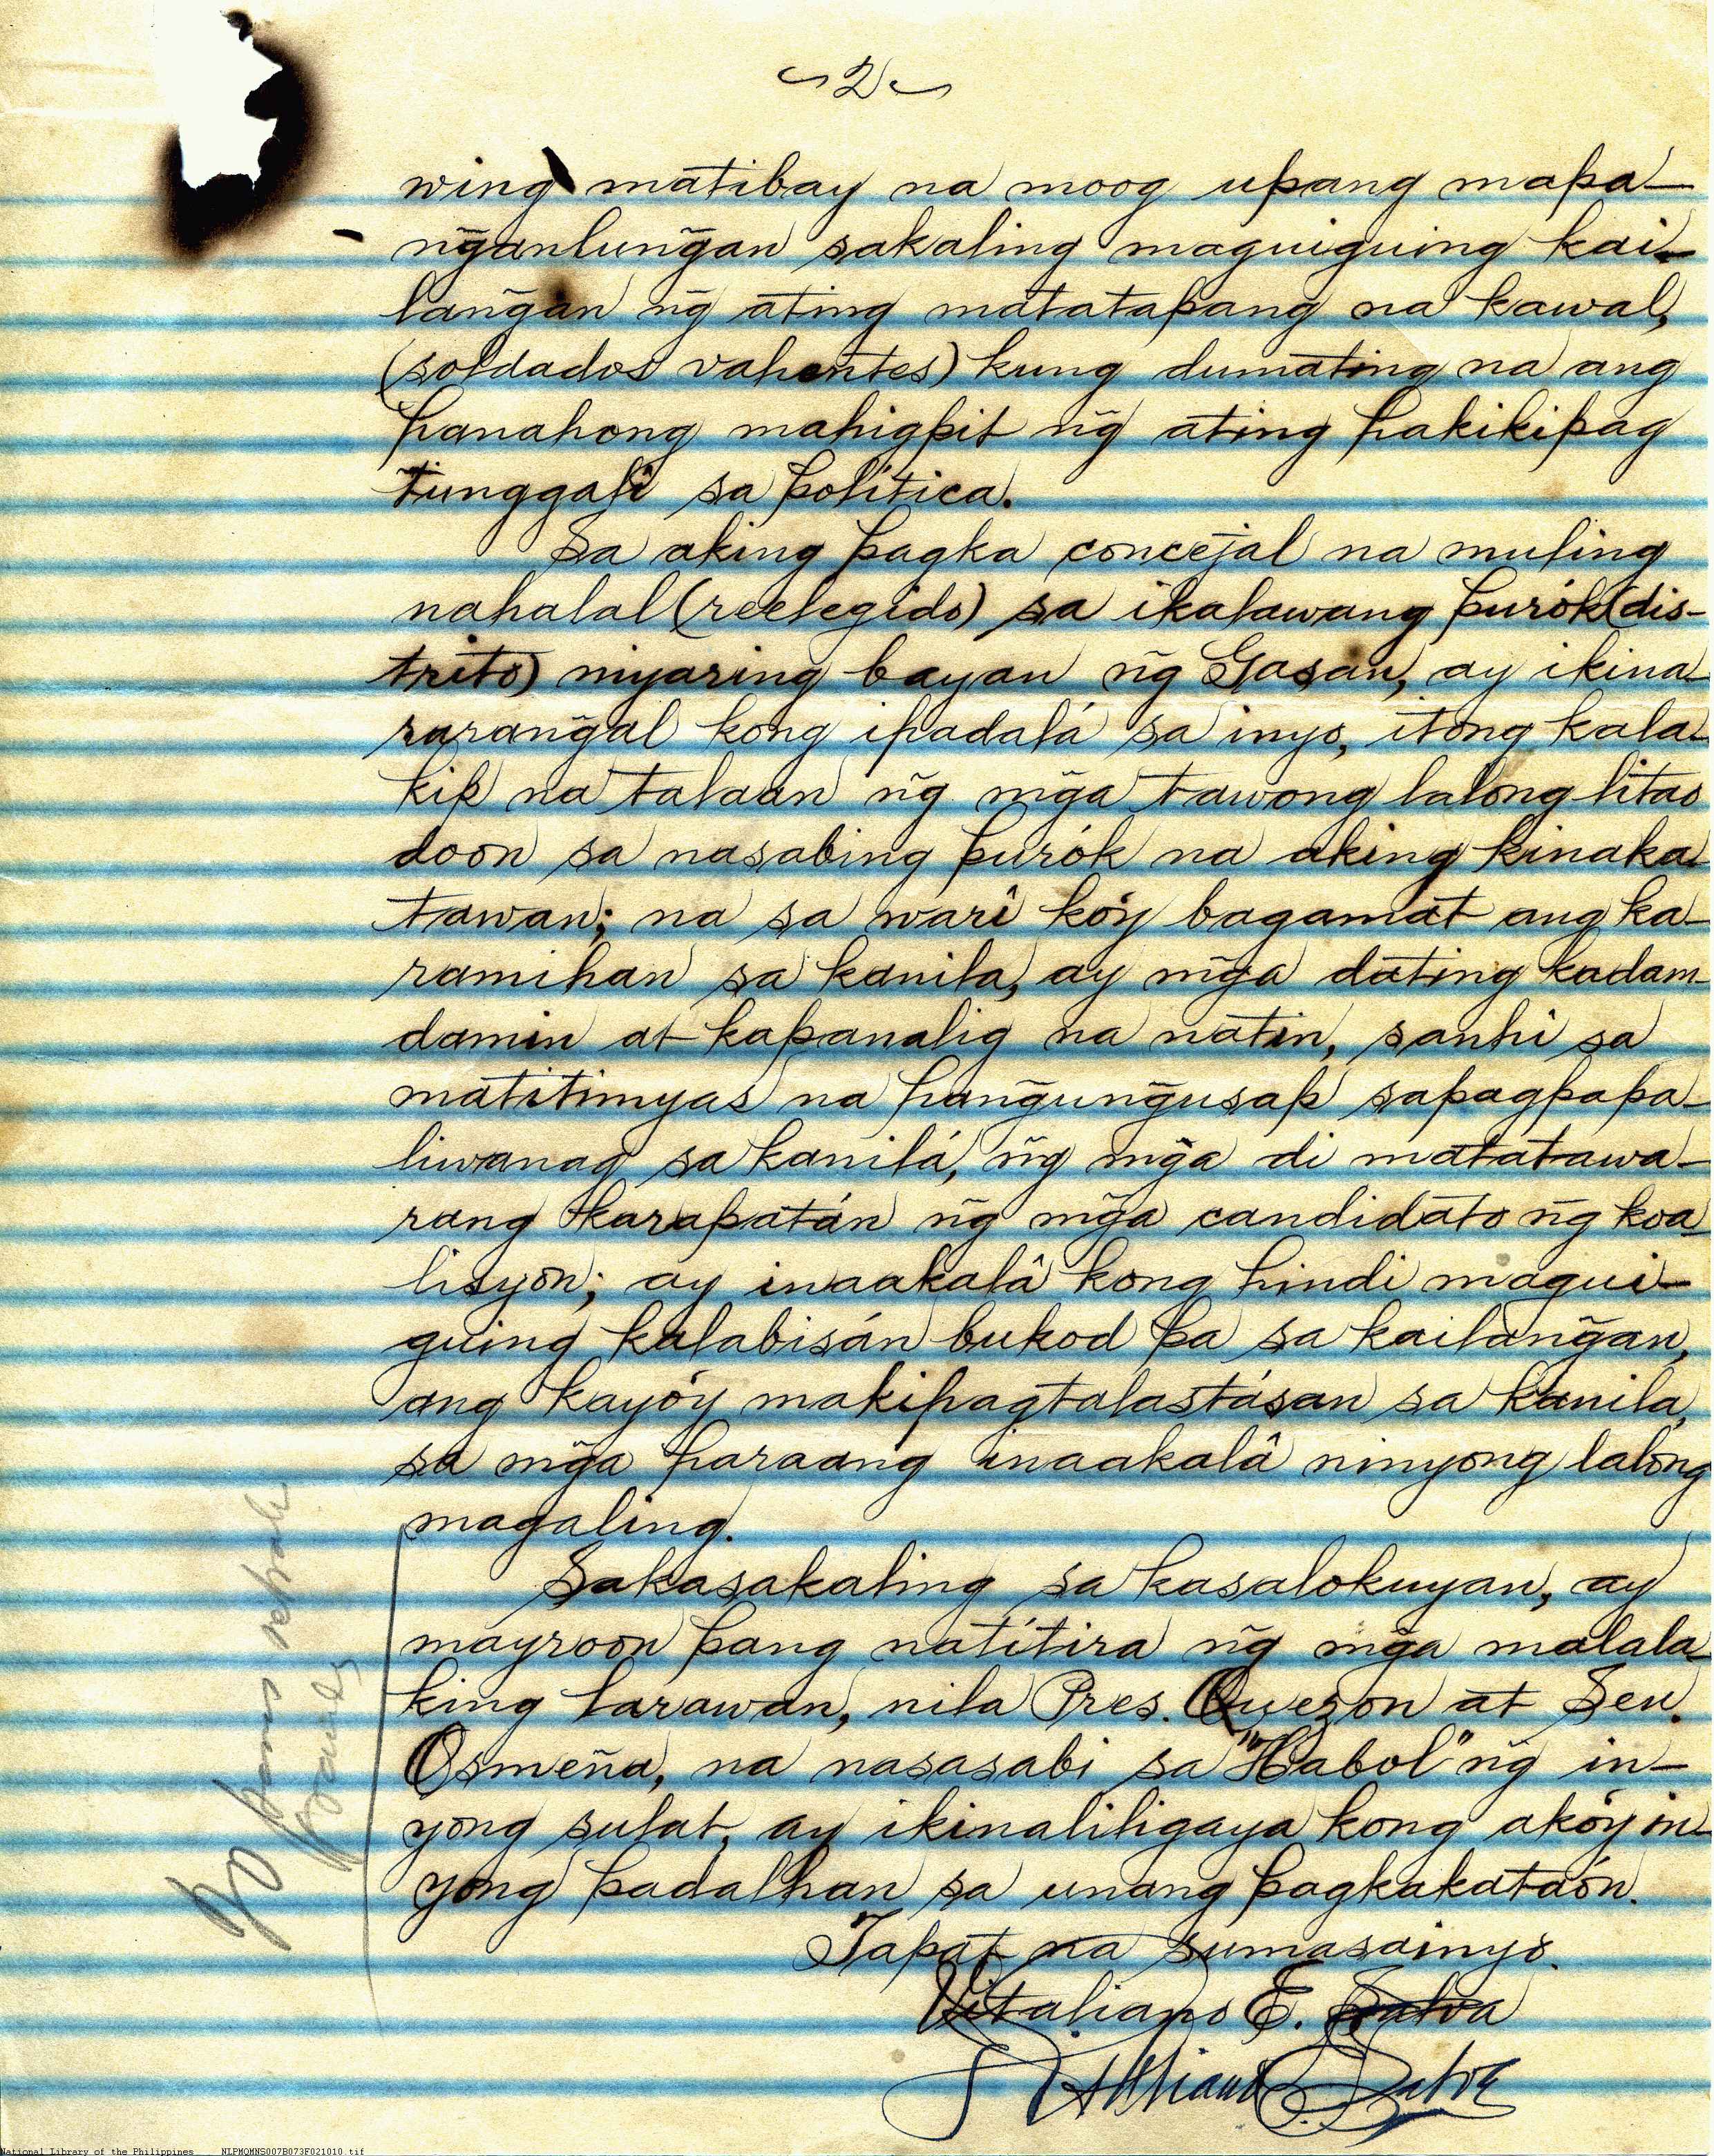 2
wing matibay na moog upang mapa-
ñganluñgan sakaling maguiguing kai-
lañgan ng̃ ating matatapang na kawal,
(soldados valientes) kung dumating na ang
panahong mahigpit ng̃ ating pakikipag
tunggali sa política.
Sa aking pagka concejal na muling
nahalal (reelegido) sa ikalawang purók (dis-
trito) niyaring bayan ng̃ Gasan, ay ikina-
rarañgal kong ipadalá sa inyo, itong kala-
kip na talaan ng̃ mg̃a tawong lalong litao
doon sa nasabing purók na aking kinaka-
tawan; na sa warî kóy bagamat ang ka-
ramihan sa kanila, ay mg̃a dating kadam-
damin at kapanalig na natin, sanhi sa
matitimyas na pañguñgusap sapagpapa-
liwanag sa kanilá, ng̃ mg̃a di matatawa-
rang karapatán ng̃ mg̃a candidato ng̃ koa-
lisyon; ay inaakalâ kong hindi magui-
guing kalabisán bukod pa sa kailañgan,
ang kayóy makipagtalastásan sa kanila,
sa mg̃a paraang inaakalâ ninyong lalong
magaling.
Sakasakaling sa kasalokuyan, ay
mayroon pang natítira ng̃ mg̃a malala-
king larawan, nila Pres. Quezon at Sen.
Osmeña, na nasasabi sa "Habol" ng̃ in-
yong sulat, ay ikinaliligaya kong akóy in-
yong padalhan sa unang pagkakataón.
Tapat na sumasainyo.
Vitaliano E. Salva
Vitaliano E. Salva
National Library of the Philippines NLPMQMNS007B073F021010.tif